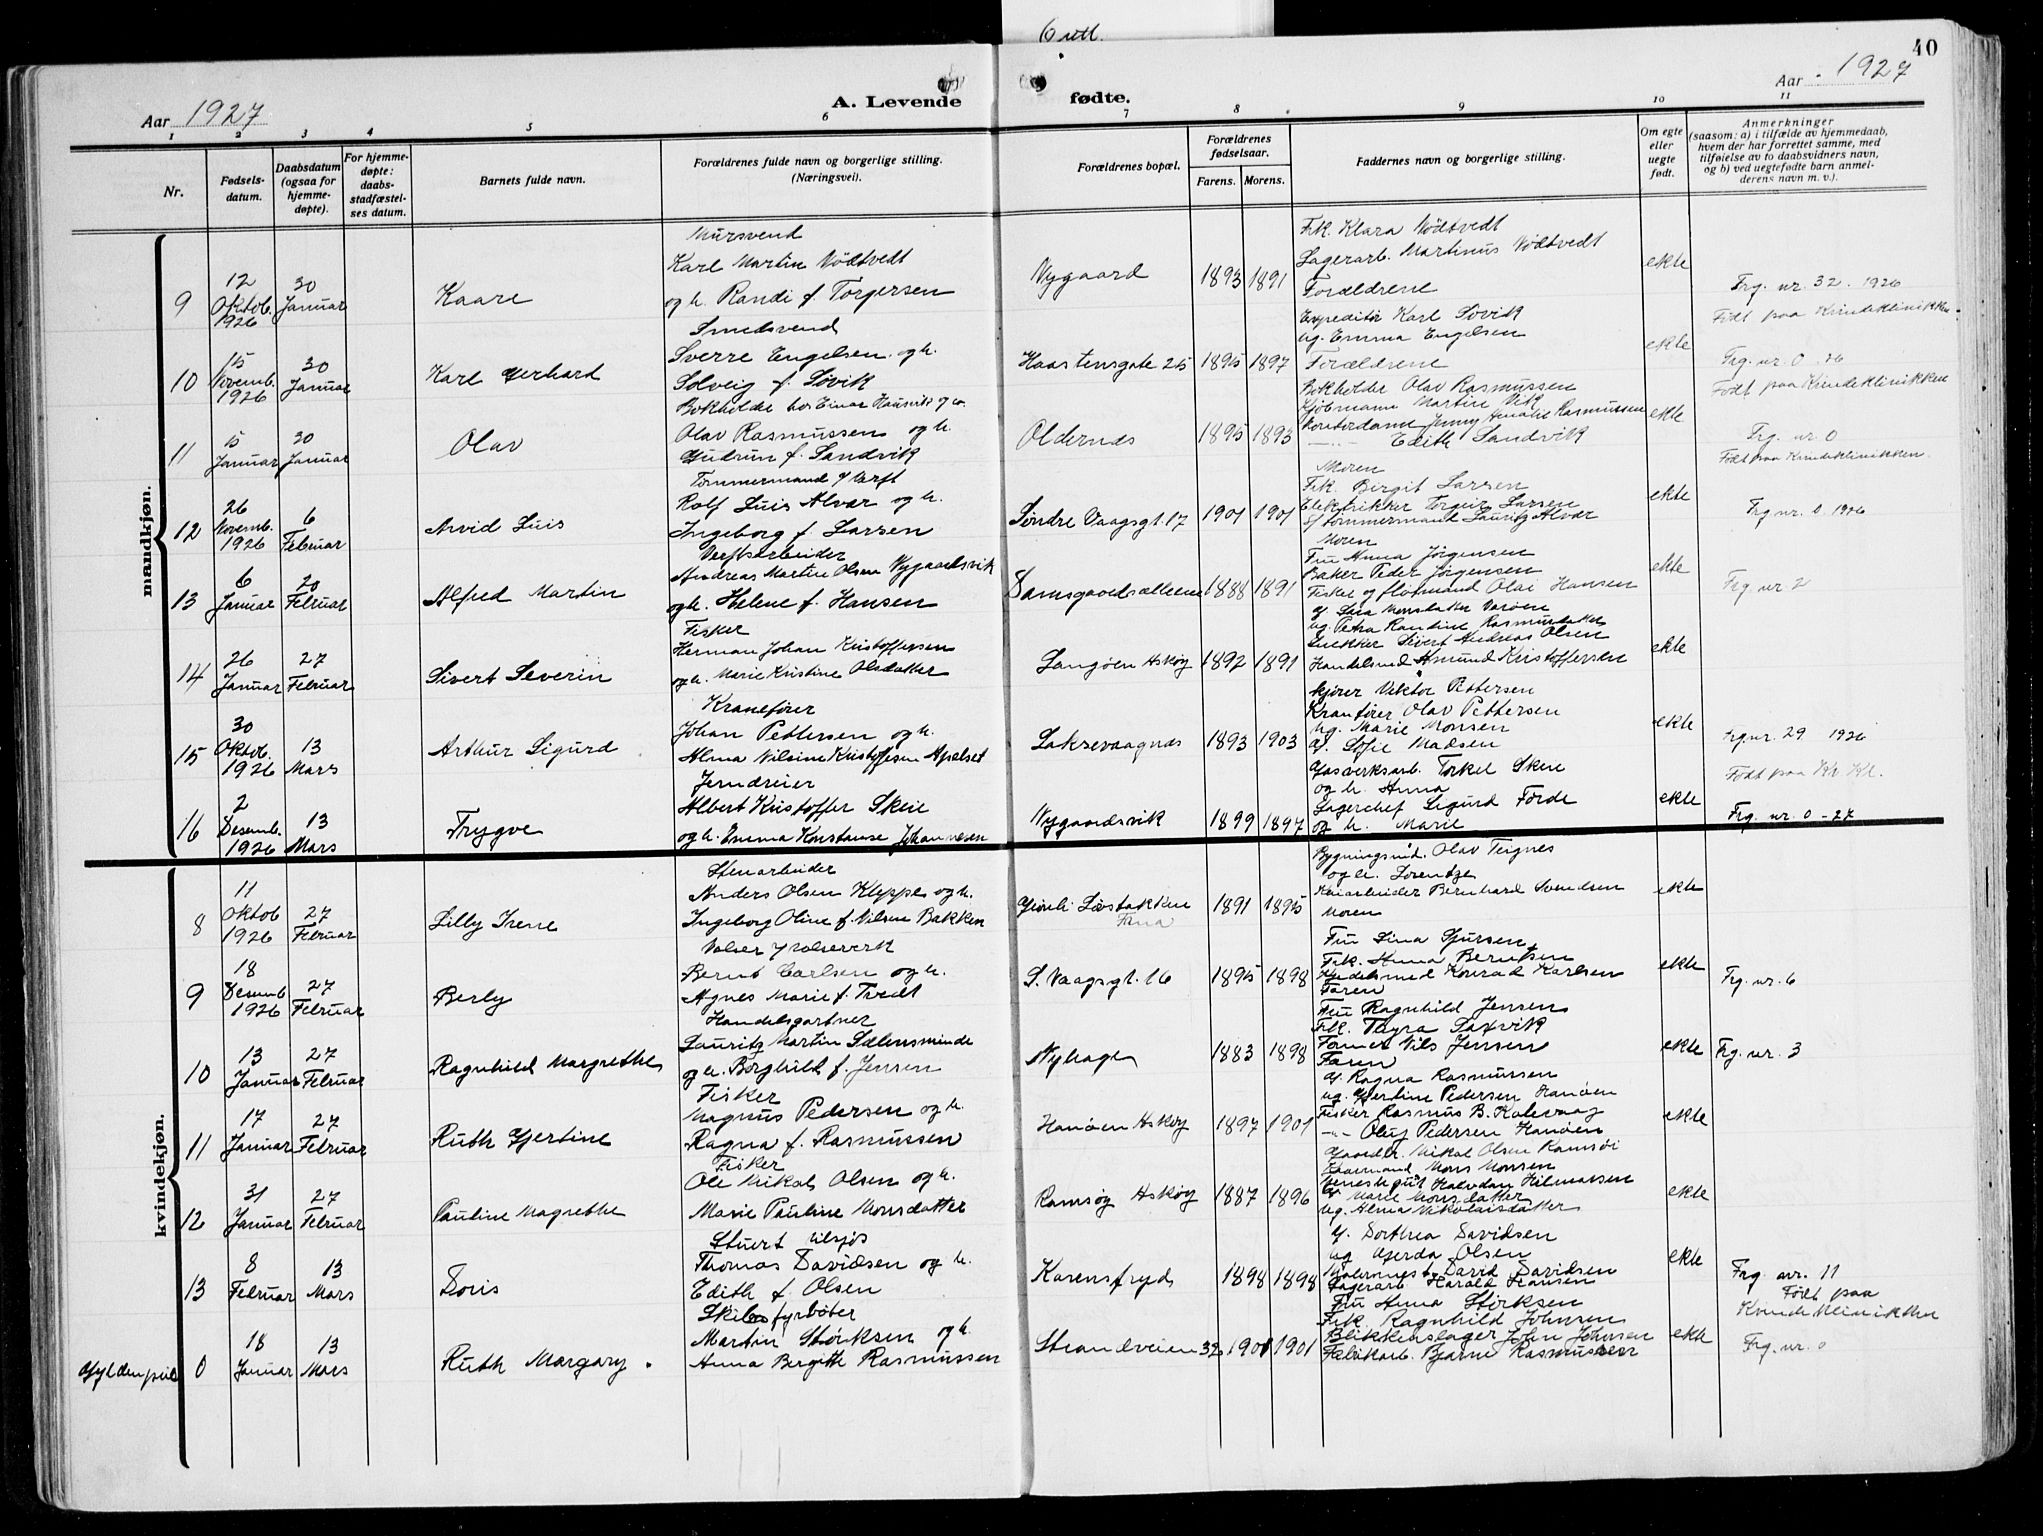 6 utl.
40
Aar 1927
A. Levende
fødte.
Aar 1927
1 2 3 4 5 6 7 8 9 10 11
Nr.
Fødsels-
datum.
Daabsdatum
(ogsaa for
hjemme-
døpte).
For hjemme-
døpte:
daabs-
stadfæstel-
ses datum.
Barnets fulde navn.
Forældrenes fulde navn og borgerlige stilling.
(Næringsvei).
Forældrenes bopæl.
Forældrenes
fødselsaar.
Farens. Morens.
Faddernes navn og borgerlige stilling.
Om egte
eller
uegte
født.
Anmerkninger
(saasom: a) i tilfælde av hjemmedaab,
hvem der har forrettet samme, med
tilføielse av to daabsvidners navn,
og b) ved uegtefødte barn anmel-
derens navn m. v.).
mandkjøn.
9
12
Oktob.
1926
30
Januar
Kaare
Mursvend
Karl Martin Nödtvedt
og h. Randi f. Torgersen
Nygaard
1893 1891
Frk. Klara Nödtvedt
Lagerarb. Martinus Nödtvedt
Forældrene
ekte
Frg. nr. 32. 1926
Födt paa Kvindeklinikken.
10
15
Novemb.
1926
30
Januar
Karl Gerhard
Smedsvend
Sverre Engelsen og h.
Solveig f. Sövik
Haastensgate 25
1895 1897
Expeditör Karl Sövik
Ug. Emma Engelsen
Forældrene
ekte
Frg. nr. 0 26
Födt paa Kvindeklinikken
11
15
Januar
30
Januar
Olav
Bokholder hos Einar Hausvik & co.
Olav Rasmussen og h.
Gudrun f. Sandvik
Oldernes
1895 1893
Bokholder Olav Rasmussen
Kjöbmann Martin Vik
Kontordame Jenny Amalie Rasmussen
—"— Edith Sandvik
ekte
Frg. nr. 0
Födt paa Kvindeklinikken.
12
26
Novemb.
1926
6
Februar
Arvid Luis
Tömmermand v/ Verft
Rolf Luis Alvær og h.
Ingeborg f. Larsen
Söndre Vaagsgt. 17
1901 1901
Moren
Frk. Birgit Larsen
Elektrikker Torgeir Larsen
Tömmermand Lauritz Alvær
ekte
Frg. nr. 0 1926
13
6
Januar
20
Februar
Alfred Martin
Verftsarbeider
Andreas Martin Olsen Nygaardsvik
og h. Helene f. Hansen
Damsgaardsalleen
1888 1891
Moren
Fru Anna Jörgensen
Baker Peder Jörgensen
Fisker og flotmand Olai Hansen
ekte
Frg. nr 2
14
26
Januar
27
Februar
Sivert Severin
Fisker
Herman Johan Kristoffersen
og h. Marie Kristine Olsdatter
Langöen Asköy
1892 1891
Ug. Petra Rasmusdatter
Snekker Sivert Andreas Olsen
Handelsmd Amund Kristoffersen
ekte
15
30
Oktob.
1926
13
Mars
Arthur Sigurd
Kranefører
Johan Pettersen og h.
Alma Nilsine Kristoffersen Apelset
Laksevaagnes
1893 1903
Kjörer Viktor Pettersen
Kranförer Olav Pettersen
Ug. Marie Monsen
G. Sofie Madsen
ekte
Frg. nr. 29 1926
Födt paa Kv. Kl.
16
2
Desemb.
1926
13
Mars
Trygve
Jerndreier
Albert Kristoffer Skeie
og h. Emma Konstanse Johannesen
Nygaardsvik
1899 1897
Gasverksarb. Torkel Skeie
og h. Anna
Lagerchef Sigurd Förde
og h. Marie
ekte
Frg. nr. 0 - 27
kvindekjøn.
8
11
Oktob
1926
27
Februar
Lilly Irene
Stenarbeider
Anders Olsen Kleppe og h.
Ingeborg Oline f. Nilsen Bakken
Gjönli Lövstakken
Fana
1891 1895
Bygningssnd. Olav Teignes
og h. Lorentze
Kaiarbeider Bernhard Svendsen
Moren
ekte
9
18
Desemb
1926
27
Februar
Berly
Valser v/ valseverk
Bernt Carlsen og h.
Agnes Marie f. Tvedt
S. Vaagsgt. 16
1895 1898
Fru Lina Sjursen
Frk. Anna Berntsen
Handelsmd Konrad Karlsen
Faren
ekte
Frg. nr. 6
10
13
Januar
27
Februar
Ragnhild Margrethe
Handelsgartner
Lauritz Martin Sælensminde
og h. Borghild f. Jensen
Nyhagen
1883 1898
Fru Ragnhild Jensen
Frk. Thyra Saxvik
Former Nils Jensen
Faren
ekte
Frg. nr. 3
11
17
Januar
27
Februar
Ruth Gjertine
Fisker
Magnus Pedersen og h.
Ragna f. Rasmussen
Hanöen Asköy
1897 1901
G. Ragna Rasmussen
Ug. Gjertine Pedersen Hanöen
Fisker Rasmus B. Kolevaag
—"— Oluf Pedersen Hanöen
ekte
12
31
Januar
27
Februar
Pauline Magrethe
Fisker
Ole Mikal Olsen og h.
Marie Pauline Monsdatter
Ramsöy Asköy
1887 1896
Gaardbr. Mikal Olsen Ramsöi
Gaardmand Mons Monsen
Tjenestegut Halvdan Hilmarsen
G. Marie Monsdatter
Ug. Alma Nikolaisdatter
ekte
13
8
Februar
13
Mars
Doris
Stuert tilsjös
Thomas Davidsen og h.
Edith f. Olsen
Karensfryd
1898 1898
G. Dorthea Davidsen
Ug. Gjerda Olsen
Malermester David Davidsen
Lagerarb. Harald Hansen
ekte
Frg. nr. 11
Födt paa
Kvindeklinikken
Gyldenpris
0
18
Januar
13
Mars
Ruth Margary.
Skibsfyrböter
Martin Störksen og h.
Anna Bergitte Rasmussen
Strandveien 32
1901 1901
Fru Anna Störksen
Frk. Ragnhild Johnsen
Blikkenslager John Johnsen
Fabrikarb. Bjarne Rasmussen
ekte
Frg. nr. 0